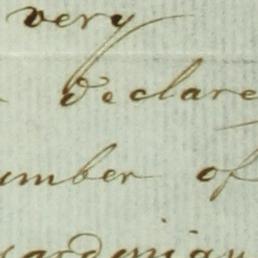 very
declare
umber of